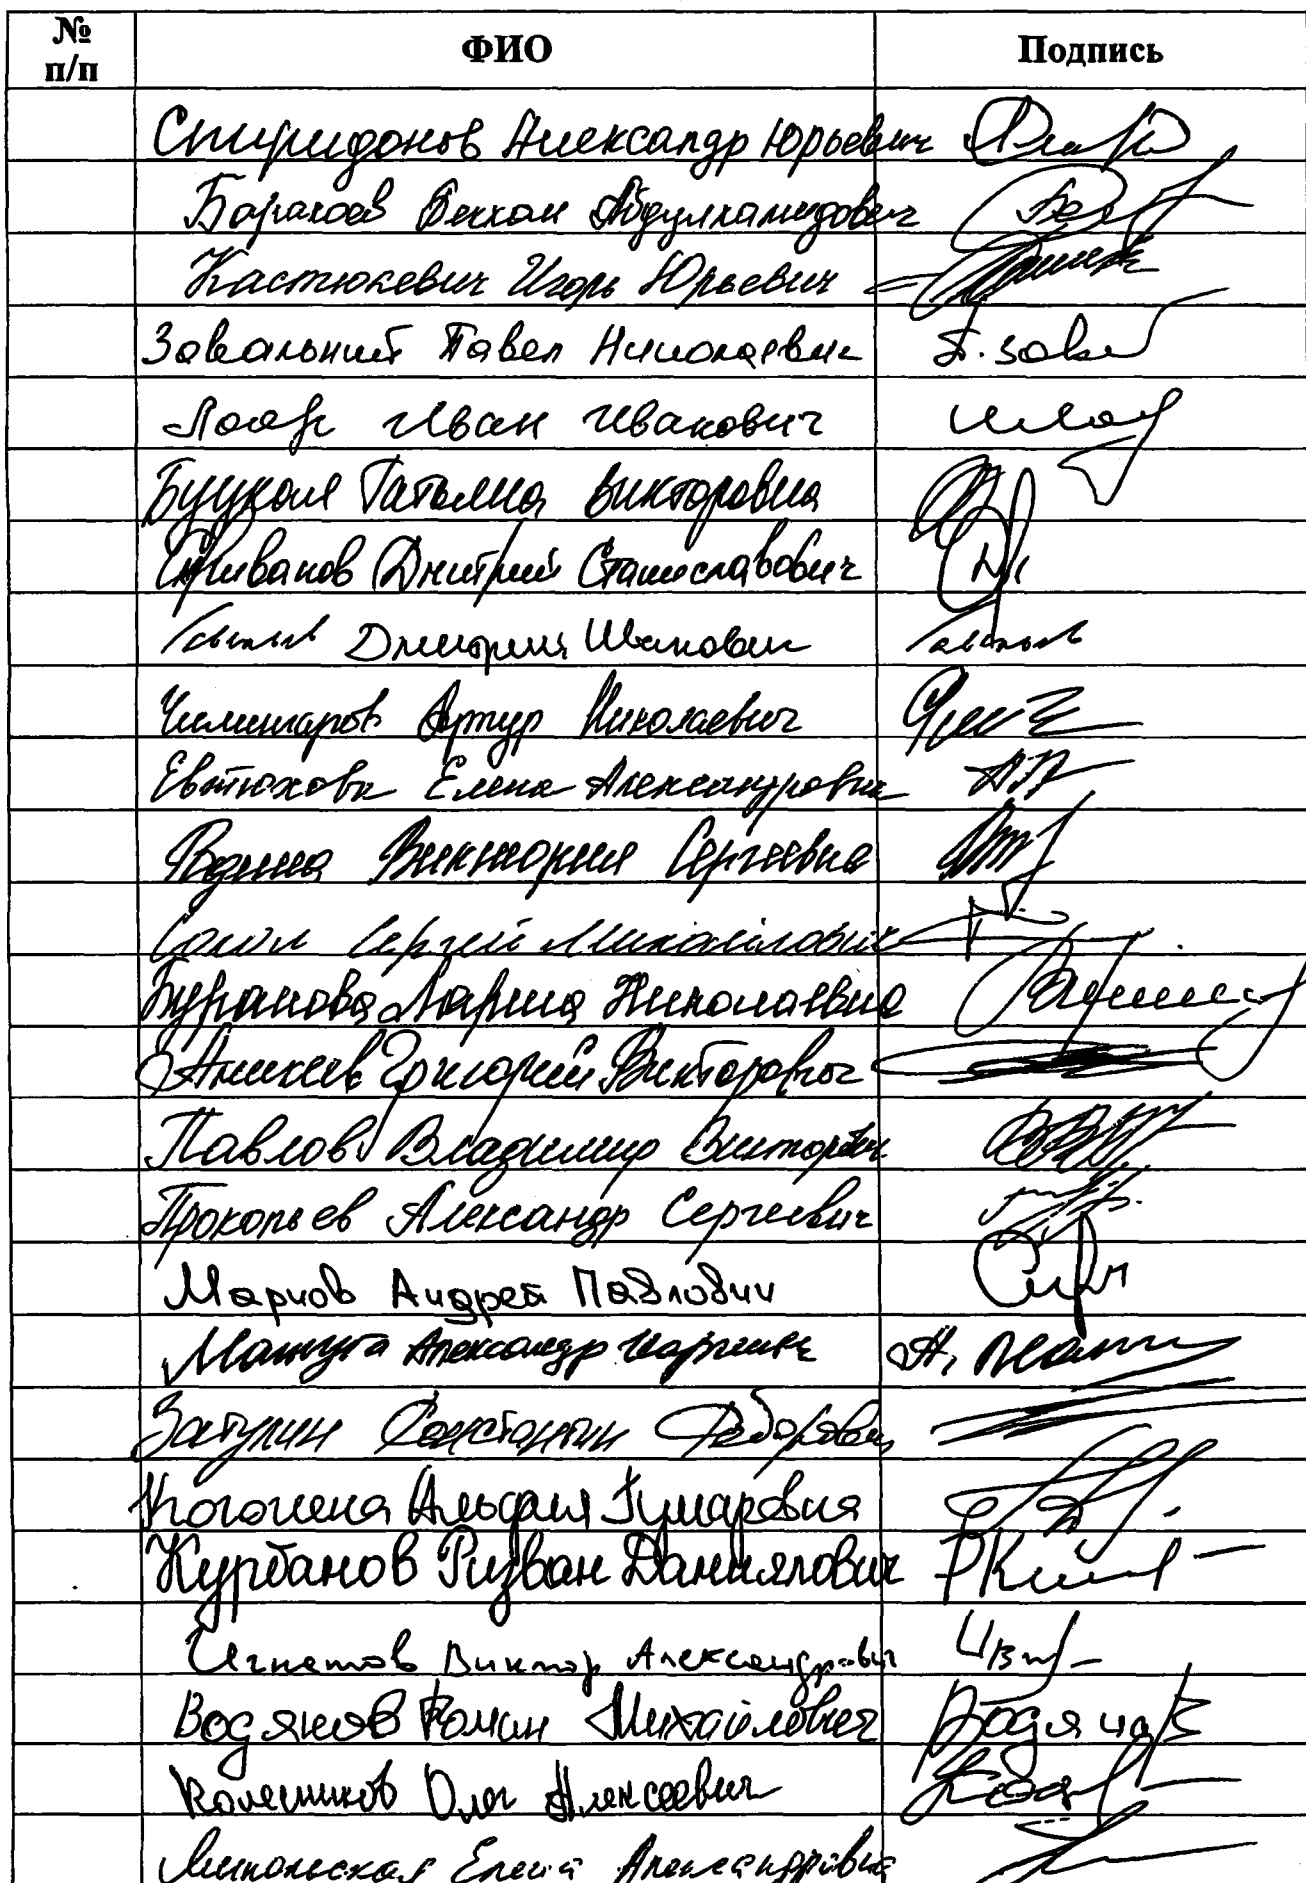 № п/п ФИО Подпись
Спиридонов Александр Юрьевич
Барахоев Бекхан Абдулхамидович
Кастюкевич Игорь Юрьевич
Завальный Павел Николаевич П. Завал
Лоор Иван Иванович
Буцкая Татьяна Викторовна
Скриванов Дмитрий Станиславович
Дмитрий Иванович
Чилингаров Артур Николаевич
Евтюхова Елена Александровна
Родина Виктория Сергеевна
Сокол Сергей Михайлович
Буранова Лариса Николаевна
Аникеев Григорий Викторович
Павлов Владимир Викторович
Прокопьев Александр Сергеевич
Марков Андрей Павлович
Мажуга Александр Георгиевич
Затулин Константин Федорович
Когогина Альфия Гумаровна
Курбанов Ризван Даниялович
Игнатов Виктор Александрович
Водянов Роман Михайлович
Колесников Олег Алексеевич
Елена Александровна